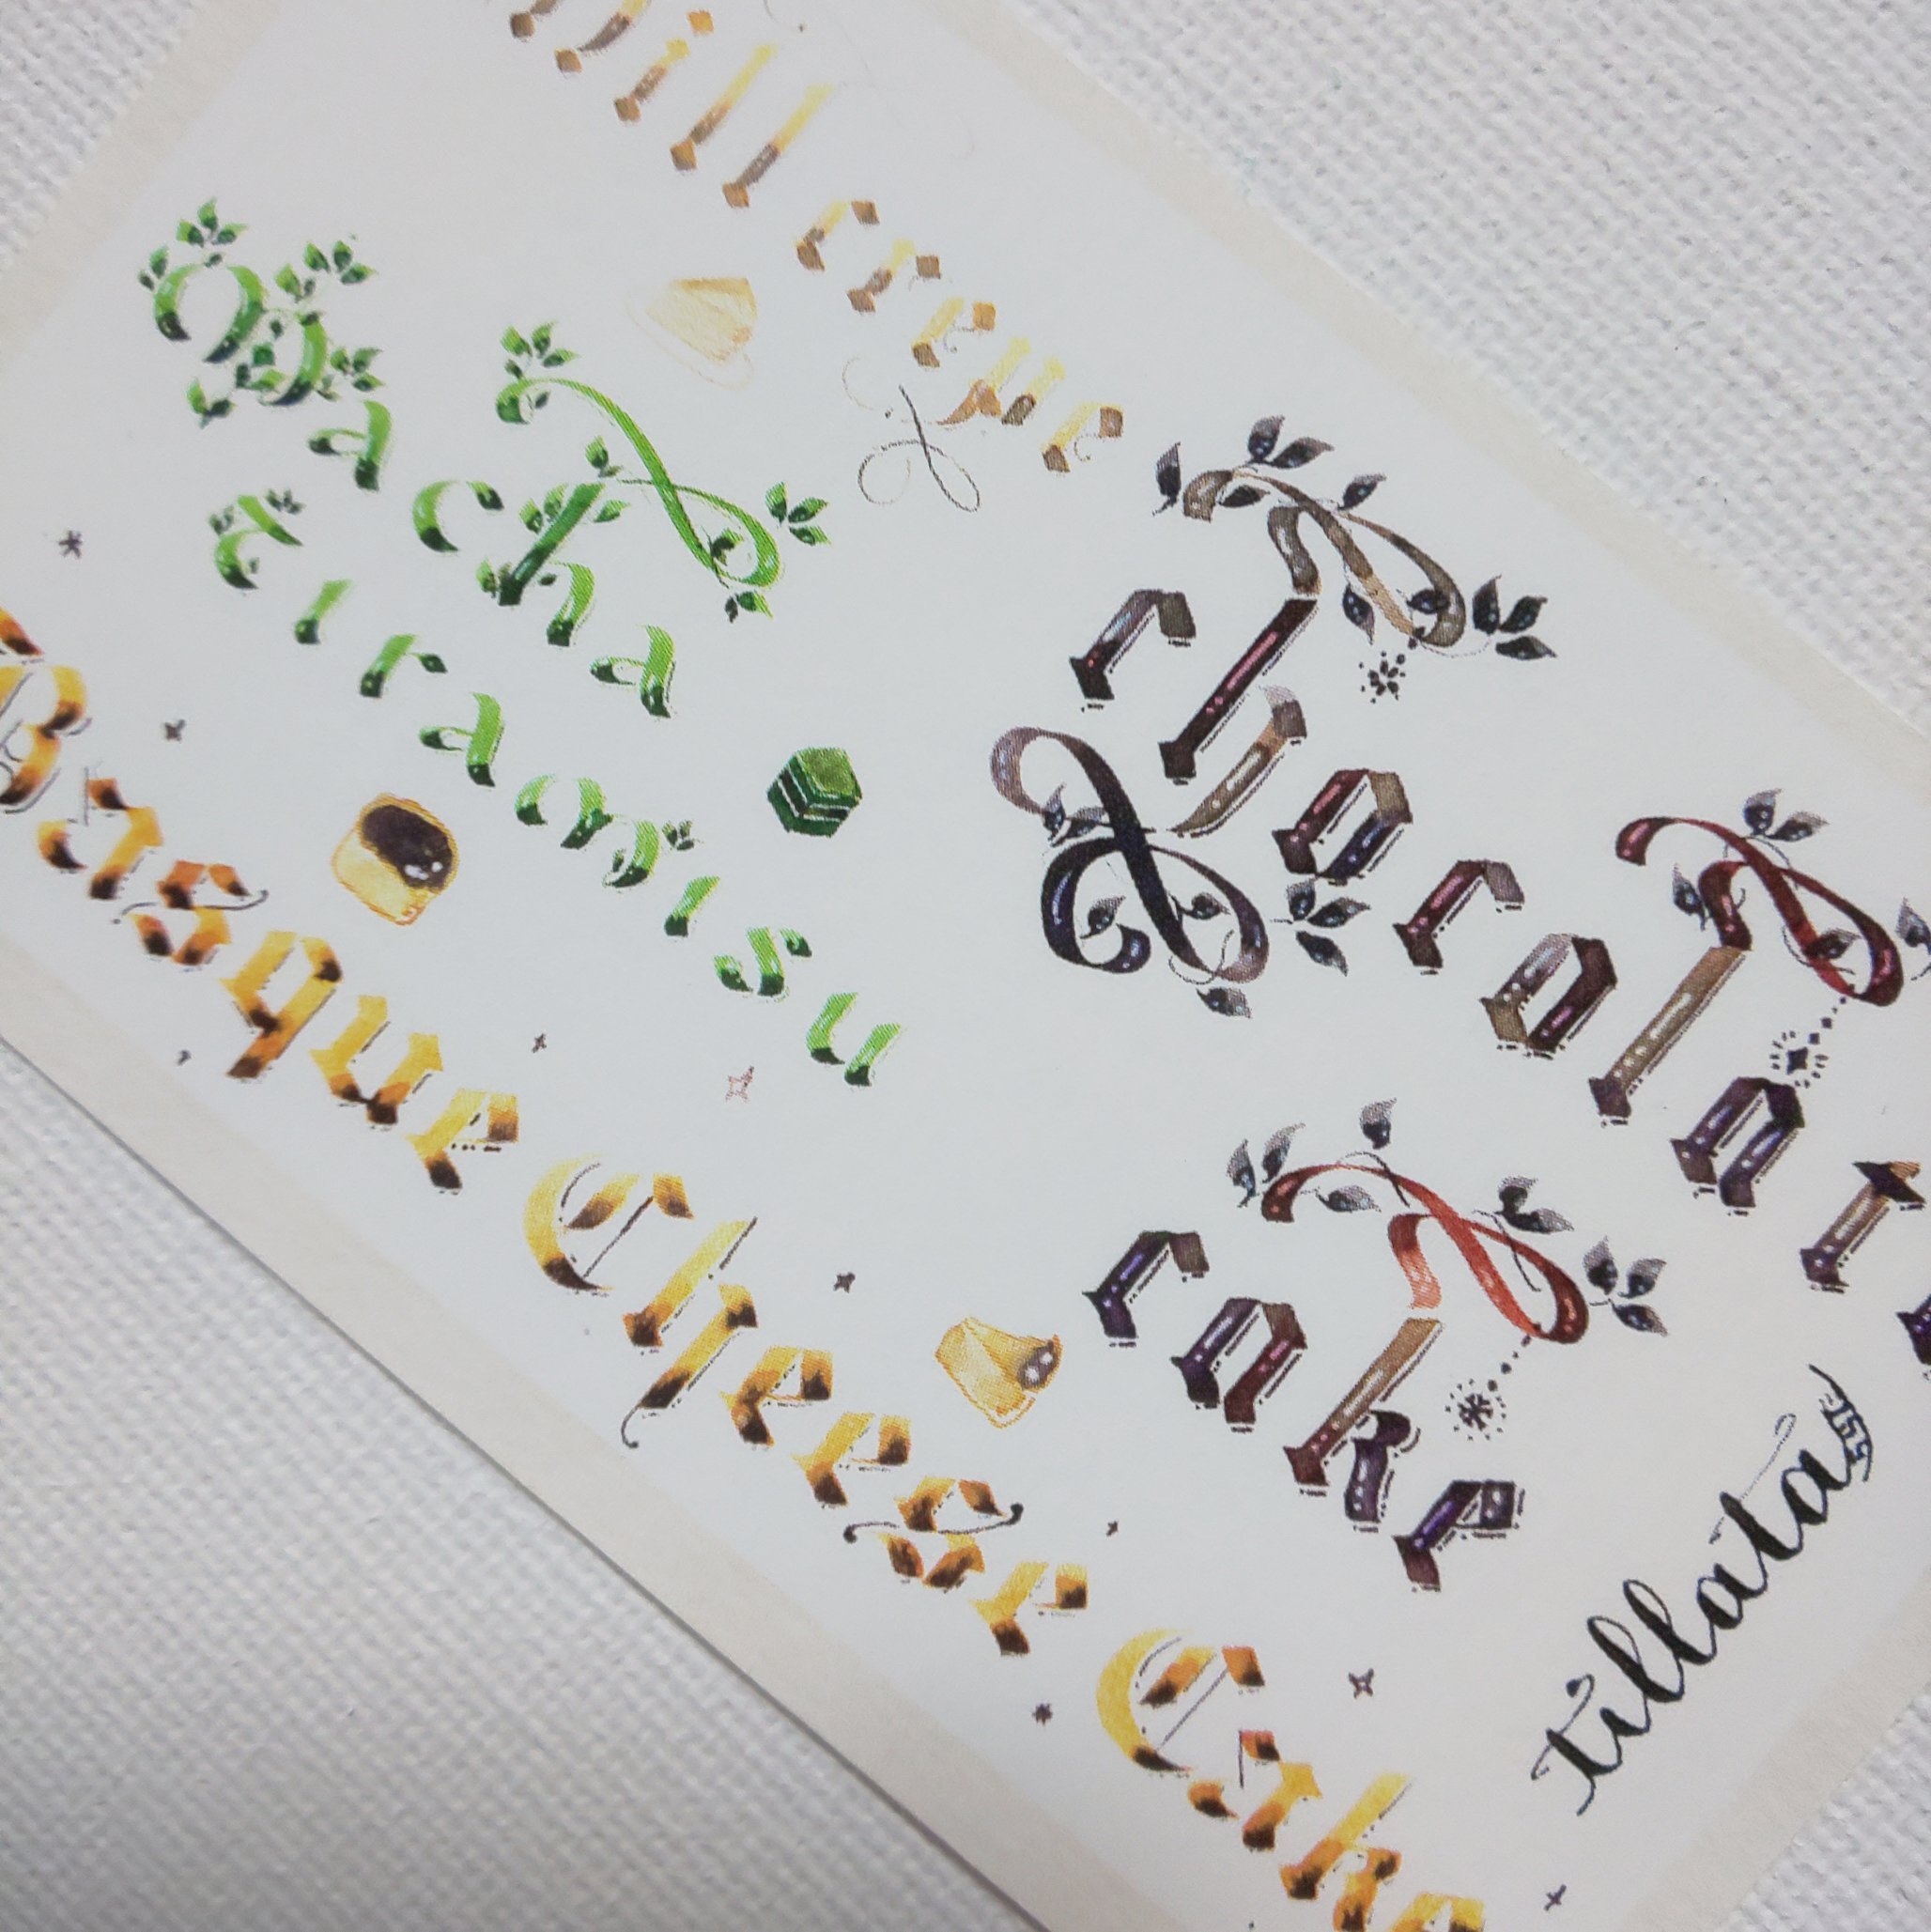 Mill crepe
Matcha
tiramisu
Basque Cheese Cake
chocolate
cake
tillata